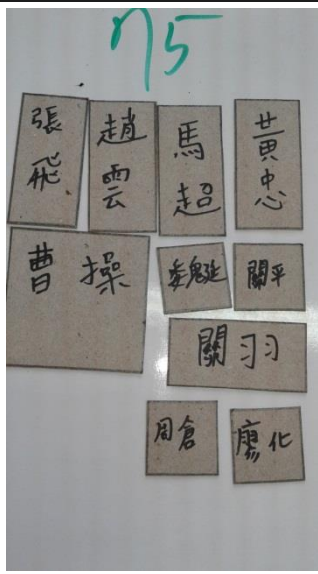 75
張飛
趙雲
馬超
黃忠
曹操
魏延
關平
關羽
周倉
廖化